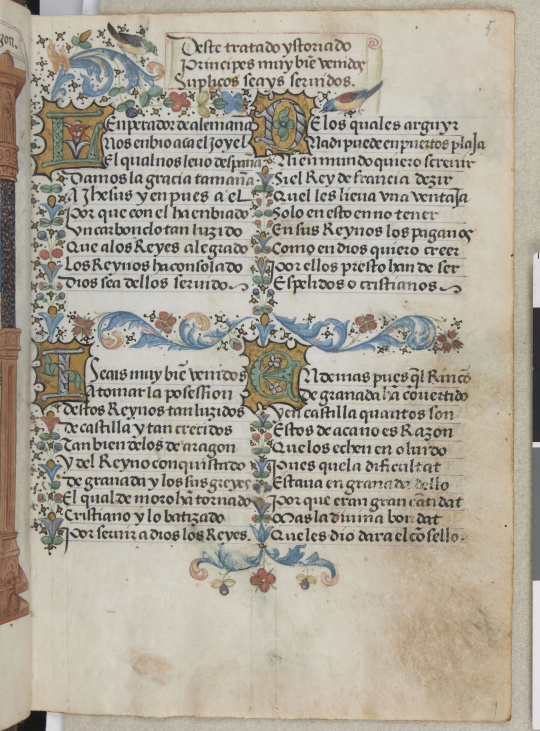 5
zon.
Deste tratado ystoriado
Principes muy biẽ venidos
Suplicos seays seruidos.
Enperador de alemana
Nos enbio aca el Joyel
El qual nos leuo despaña
Damos la gracia tamaña
A Jhesus y en pues a el
Por que con el ha enbiado
Un carbonclo tan luzido
Que a los Reyes alegrado
Los Reynos ha consolado
Dios sea dellos seruido
De los quales arguyr
Nadi puede en puertos plaJa
Ni en mundo quiero screuir
Si el Rey de francia dezir
Quel les lieua vna ventaJa
Solo en esto en no tener
En sus Reynos los paganos
Como en dios quiero creer
Por ellos presto han de ser
Espelidos o cristianos
I seais muy biẽ venidos
A tomar la posession
destos Reynos tan luzidos
de castilla y tan crecidos
Tan bien delos de aragon
Y del Reyno conquistado
De granada y los sus greyes
El qual de moro hã tornado
Cristiano y lo batizado
Por seruir a dios los Reyes.
Endemas pues q̃l Rincõ
De granada ha cõuertido
Y en castilla quantos son
Estos de aca no es Razon
Que los echen en oluido
Pues que la dificultat
Estaua en granada dello
Por que eran gran cãtidat
Mas la diuina bondat
Que les dio dara el cõsello.